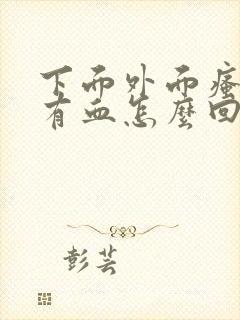 下面外面瘙
有血怎麼回
彭芸